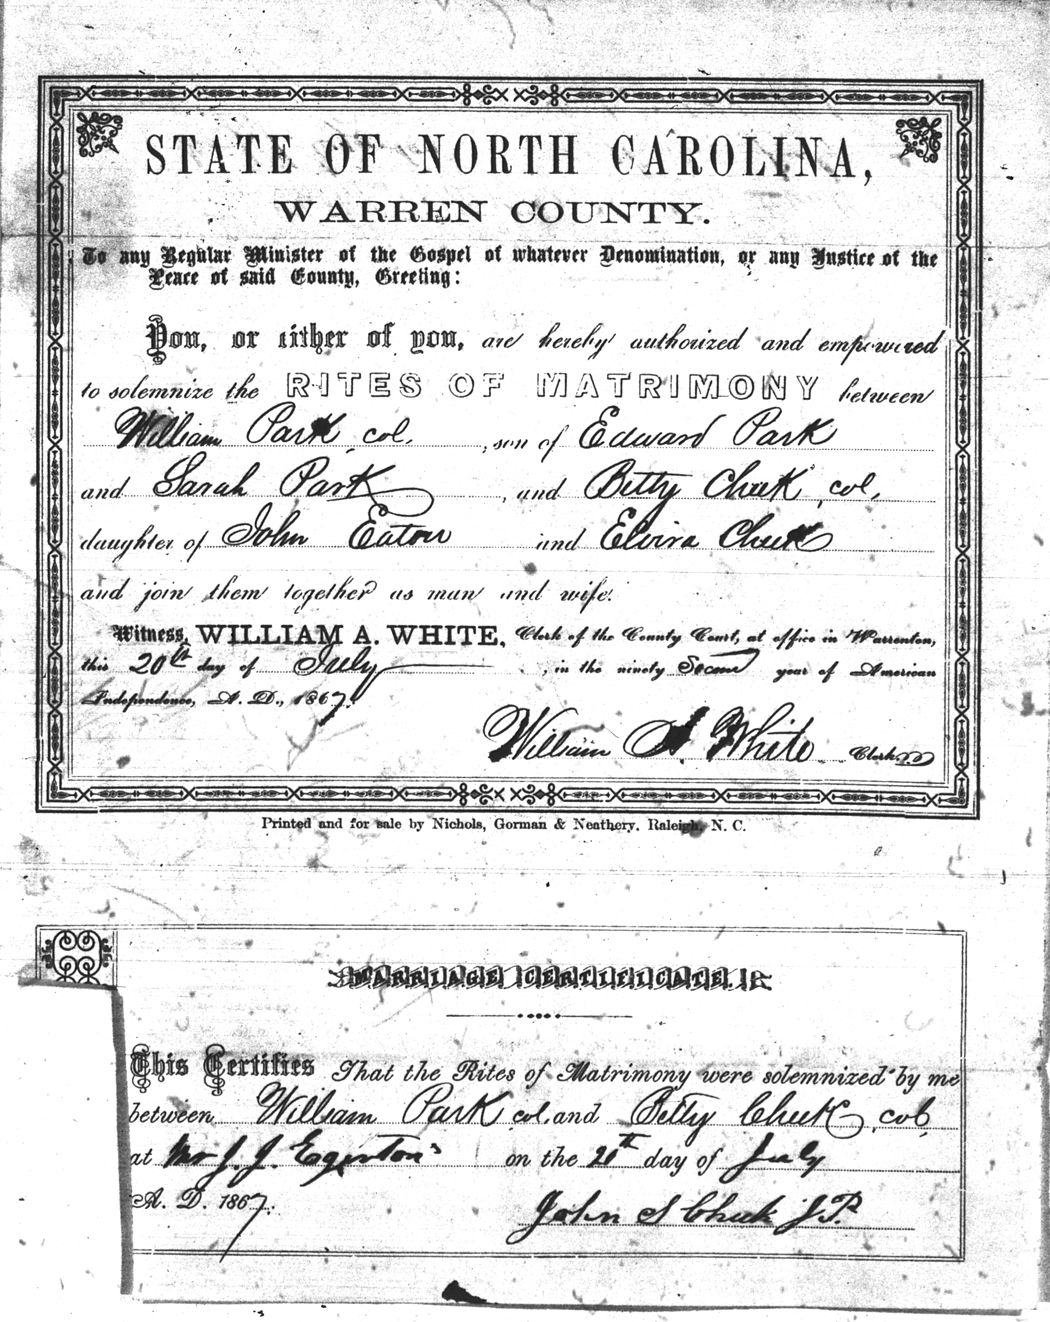 STATE OF NORTH CAROLINA,
WARREN COUNTY.
To any Regular Minister of the Gospel of whatever Denomination, or any Justice of the
Peace of said County, Greeting:
You, or either of you, are hereby authorized and empowered
to solemnize the RITES OF MATRIMONY between
William Park col. , son of Edward Park
and Sarah Park , and Betty Cheek col.
daughter of John Eaton and Elvira Cheek
and join them together as man and wife.
Witness, WILLIAM A. WHITE, Clerk of the County Court, at office in Warrenton,
this 20th day of July , in the ninety Second year of American
Independence, A. D., 1867.
William A. White Clerk
Printed and for sale by Nichols, Gorman & Neathery, Raleigh, N. C.
MARRIAGE CERTIFICATE.
This Certifies That the Rites of Matrimony were solemnized by me
between William Park col. and Betty Cheek col
at Mr J. J. Egerton's on the day of July
A. D. 1867.
John S Cheek J.P.